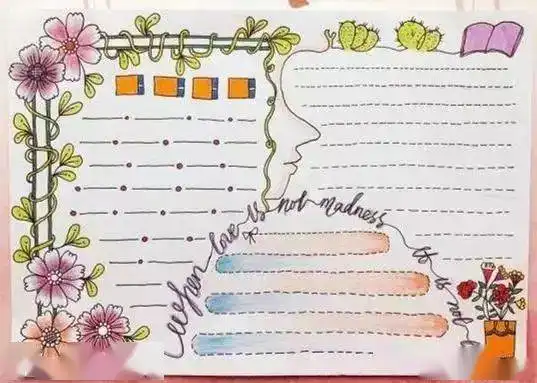 When love is not madness It is not l